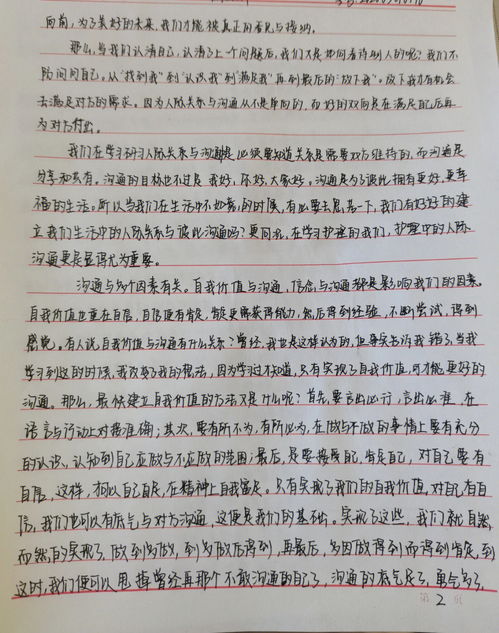 向前，为了美好的未来，我们才能被真正的看见与接纳。
那么，当我们认清自己，认清了上一个问题后，我们又是如何看待别人的呢？我们不
防问问自己，从“找到我”到“认识我”到“满足我”再到最后的“放下我”。放下我才有机会
去满足对方的需求。因为人际关系与沟通从不是单向的，而好的双向是在满足自己后再
为对方付出。
我们在学习研习人际关系与沟通是必须要知道关系是需要双方维持的，而沟通是
分享和共有。沟通的目标也不过是我好，你好，大家好。沟通是为了彼此拥有更好，更幸
福的生活。所以当我们在生活中不如意的时候，有必要去思考一下，我们有好好的建
立我们生活中的人际关系与彼此沟通吗？更何况，在学习护理的我们，护理中的人际
沟通更是显得尤为重要。
沟通与多个因素有关。自我价值与沟通，信念与沟通都是影响我们的因素。
自我价值也重在自信，自信便有能，能更需获得能力，然后得到经验，不断尝试，得到
感觉。有人说，自我价值与沟通有什么关系？曾经，我也是这样认为的，但事实告诉我错了，当我
学习到这的时候，我改变了我的想法，因为学过才知道，只有实现了自我价值，可才能更好的
沟通。那么，最快建立自我价值的方法又是什么呢？首先，要言出必行，言出必准，在
语言与行动上对接准确；其次，要有所不为，有所必为，在做与不做的事情上要有充分
的认识，认知到自己应做与不应做的范围；最后，是要接受自己，肯定自己，对自己要有
自信，这样，才可以自己自足，在精神上自我富足。只有实现了我们的自我价值，对自己有自
信，我们也可以有底气与对方沟通，这便是我们的基础。实现了这些，我们就自然
而然的实现了，做到多做，到多做后得到，再最后，多因做得到而得到肯定，到
这时，我们便可以甩掉曾经再那个不敢沟通的自己了，沟通的底气足了，勇气多了，
第2页